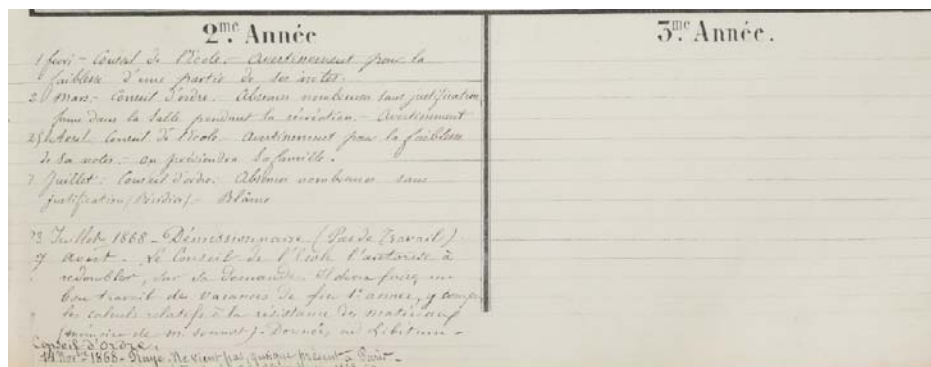 2.me Année
1 févr - Conseil de l'Ecole. - Avertissement pour la
faiblesse d'une partie de ses notes.
2 Mars. - Conseil d'ordre. Absences nombreuses sans justification,
fume dans la salle pendant la récréation. - Avertissement
25 Avril Conseil de l'Ecole - Avertissement pour la faiblesse
de ses notes. - on préviendra sa famille.
7 Juillet. Conseil d'ordre. Absences nombreuses sans
justification - Blâme
23 Juillet 1868 - Démissionnaire (Pas de Travail)
7 Août - Le Conseil de l'Ecole l'autorise à
redoubler, sur sa demande. Il devra faire un
bon travail des vacances de fin 1e année, y compris
les calculs relatifs à la résistance des matériaux
(mémoire de M. Sonnet). - ad libitum -
Conseil d'Ordre.
14 Nov. 1868 - Raye. Ne vient pas, quoique présent à Paris -
3.me Année.